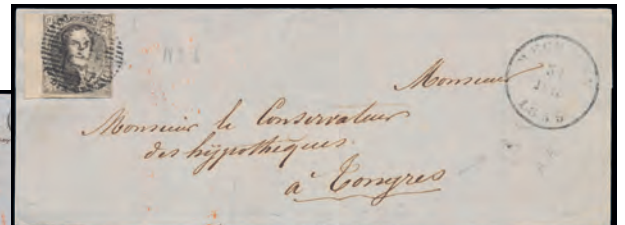 Monsieur
Monsieur le Conservateur
des hÿpothèques
à Tongres